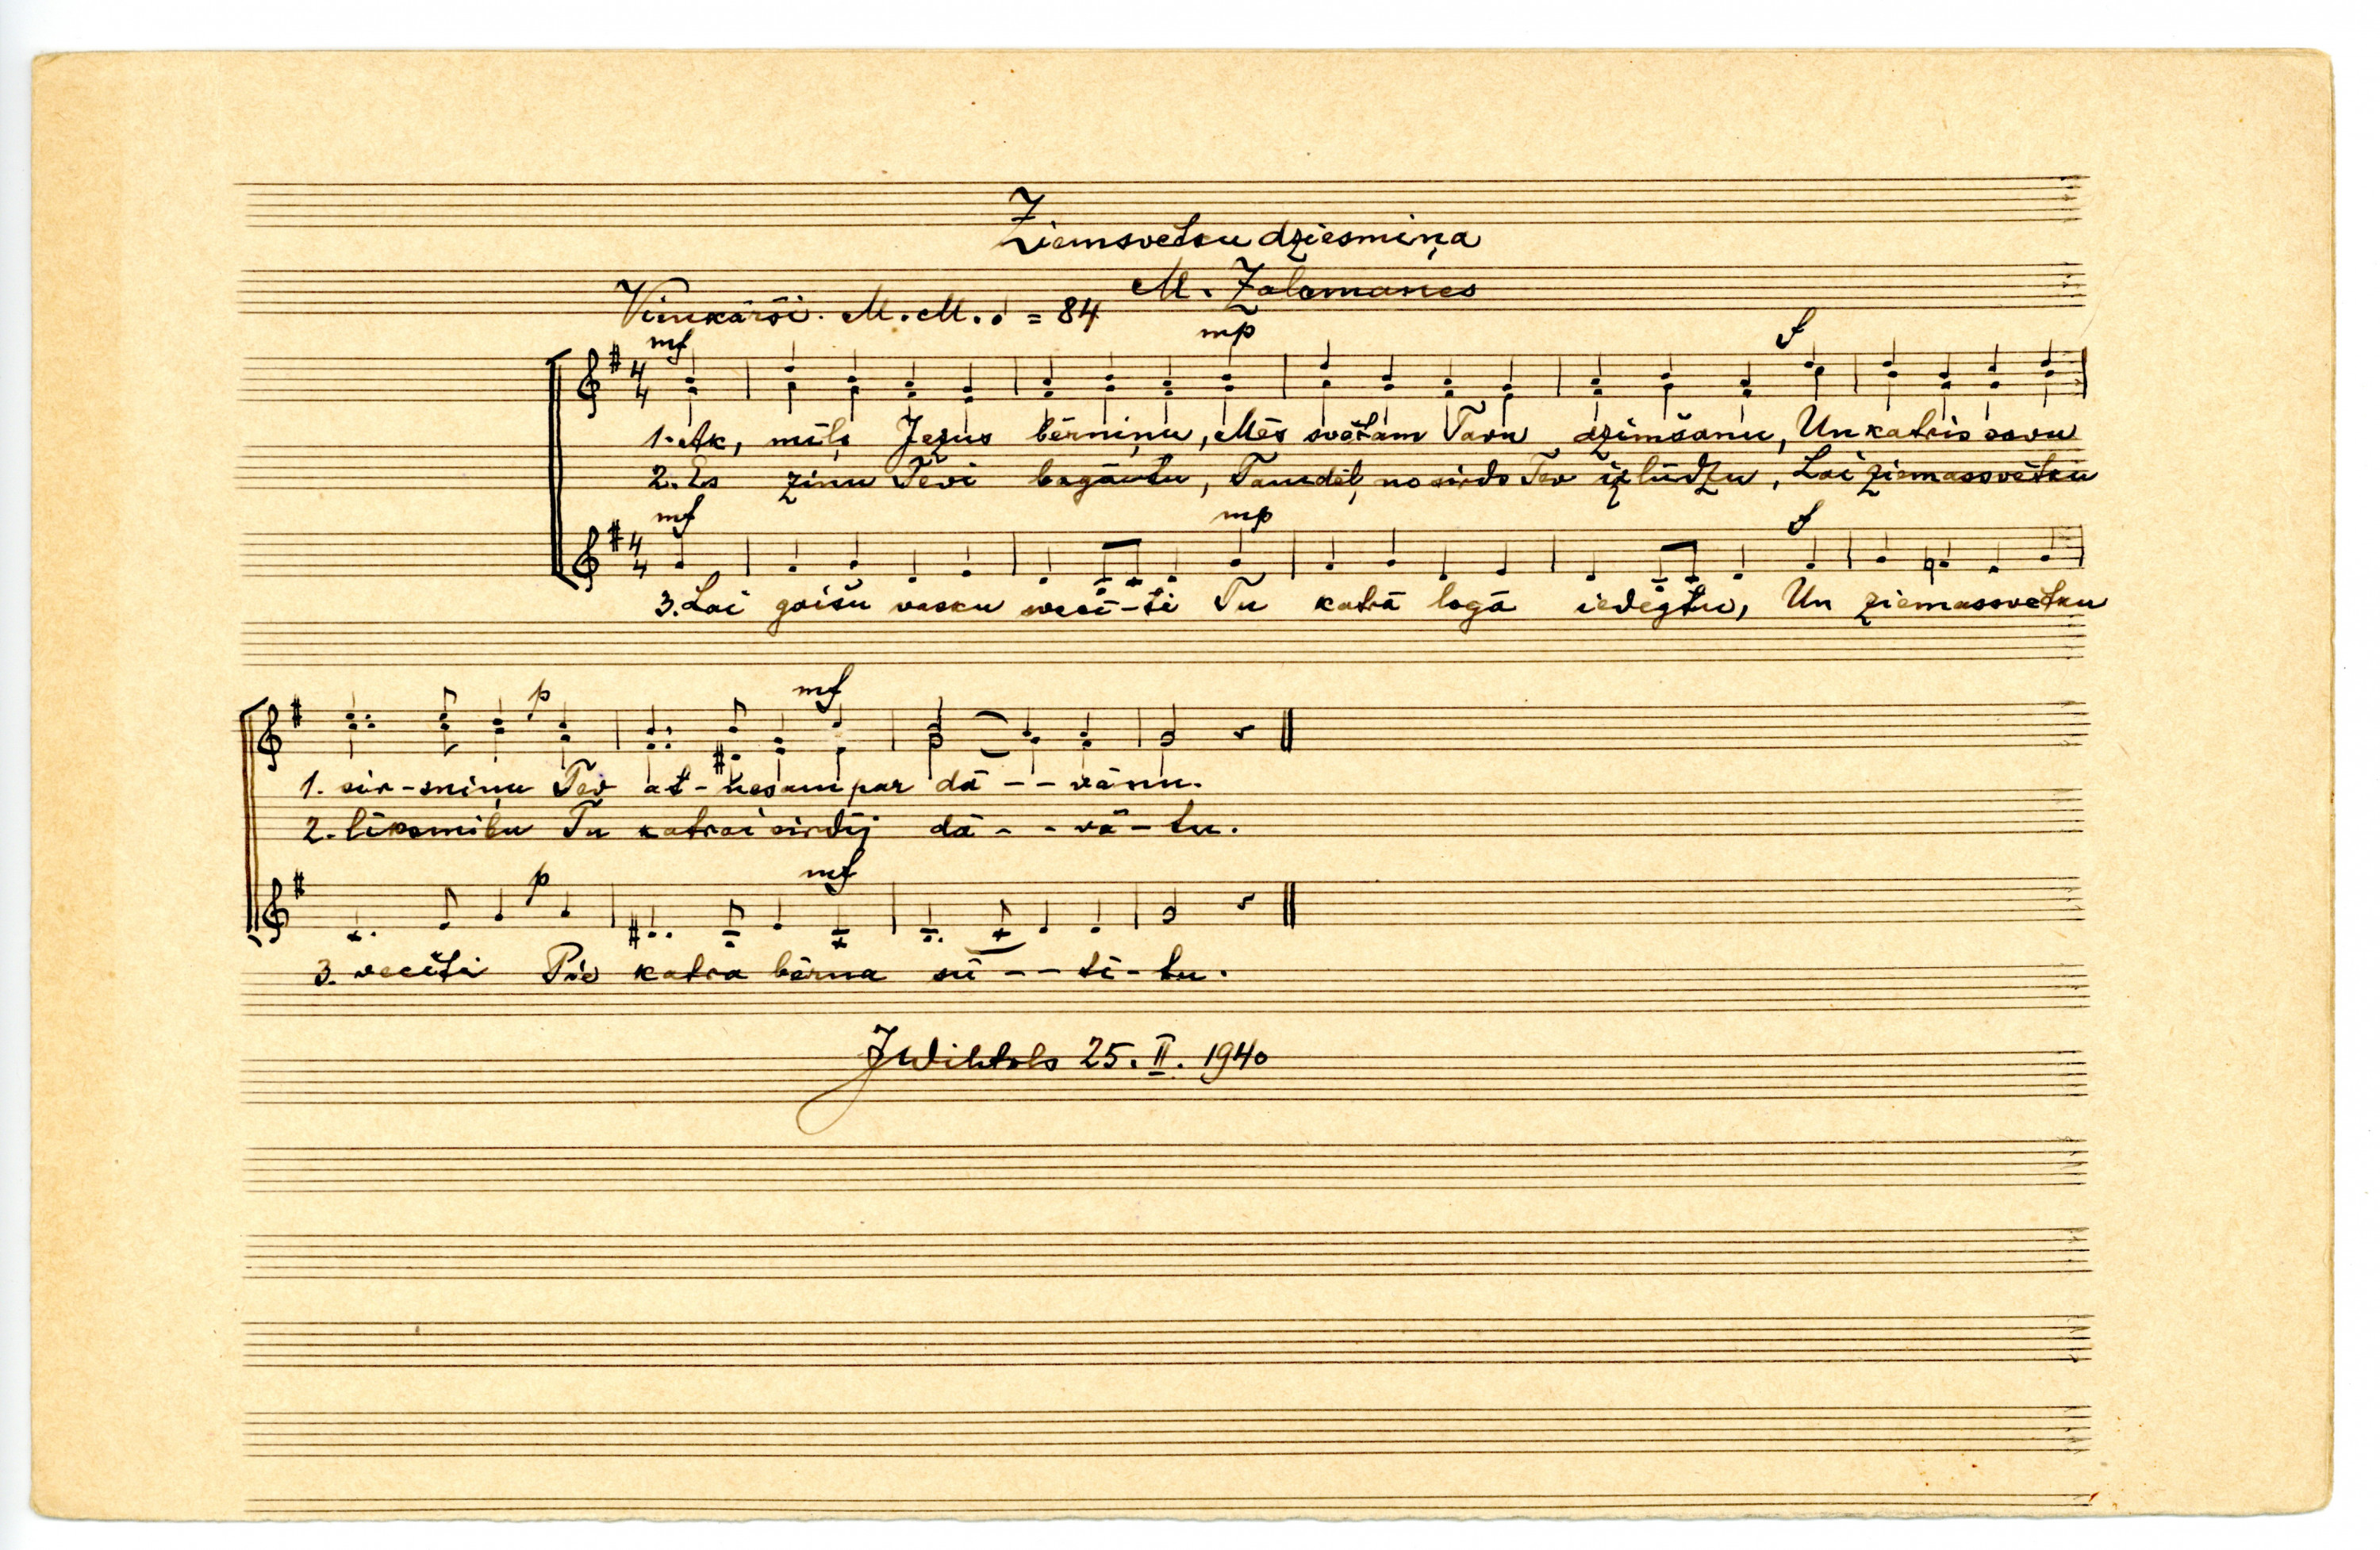 Ziemsvetku dziesmiņa
M. Zālamanes
Vienkārši. M.M. ♩ = 84
mf mp f
4 4
1. Ak, mīļo Jezus bērniņu, Mēs svētām Tavu dzimšanu, Un katris savu
2. Es zinu Tevi bagātu, Tamdēļ no sirds Tev izlūdzu, Lai ziemassvētku
mf mp f
4 4
3. Lai gaišu vasku svecī-ti Tu katrā logā iedegtu, Un ziemassvetku
p mf
1. sir-sniņu Tev at-nesam par dā - - vānu.
2. līksmību Tu katrai sirdij dā - - vā - tu.
p mf
3. vecīti Pie katra bērna sū - - tī - tu.
JWihtols 25. II. 1940